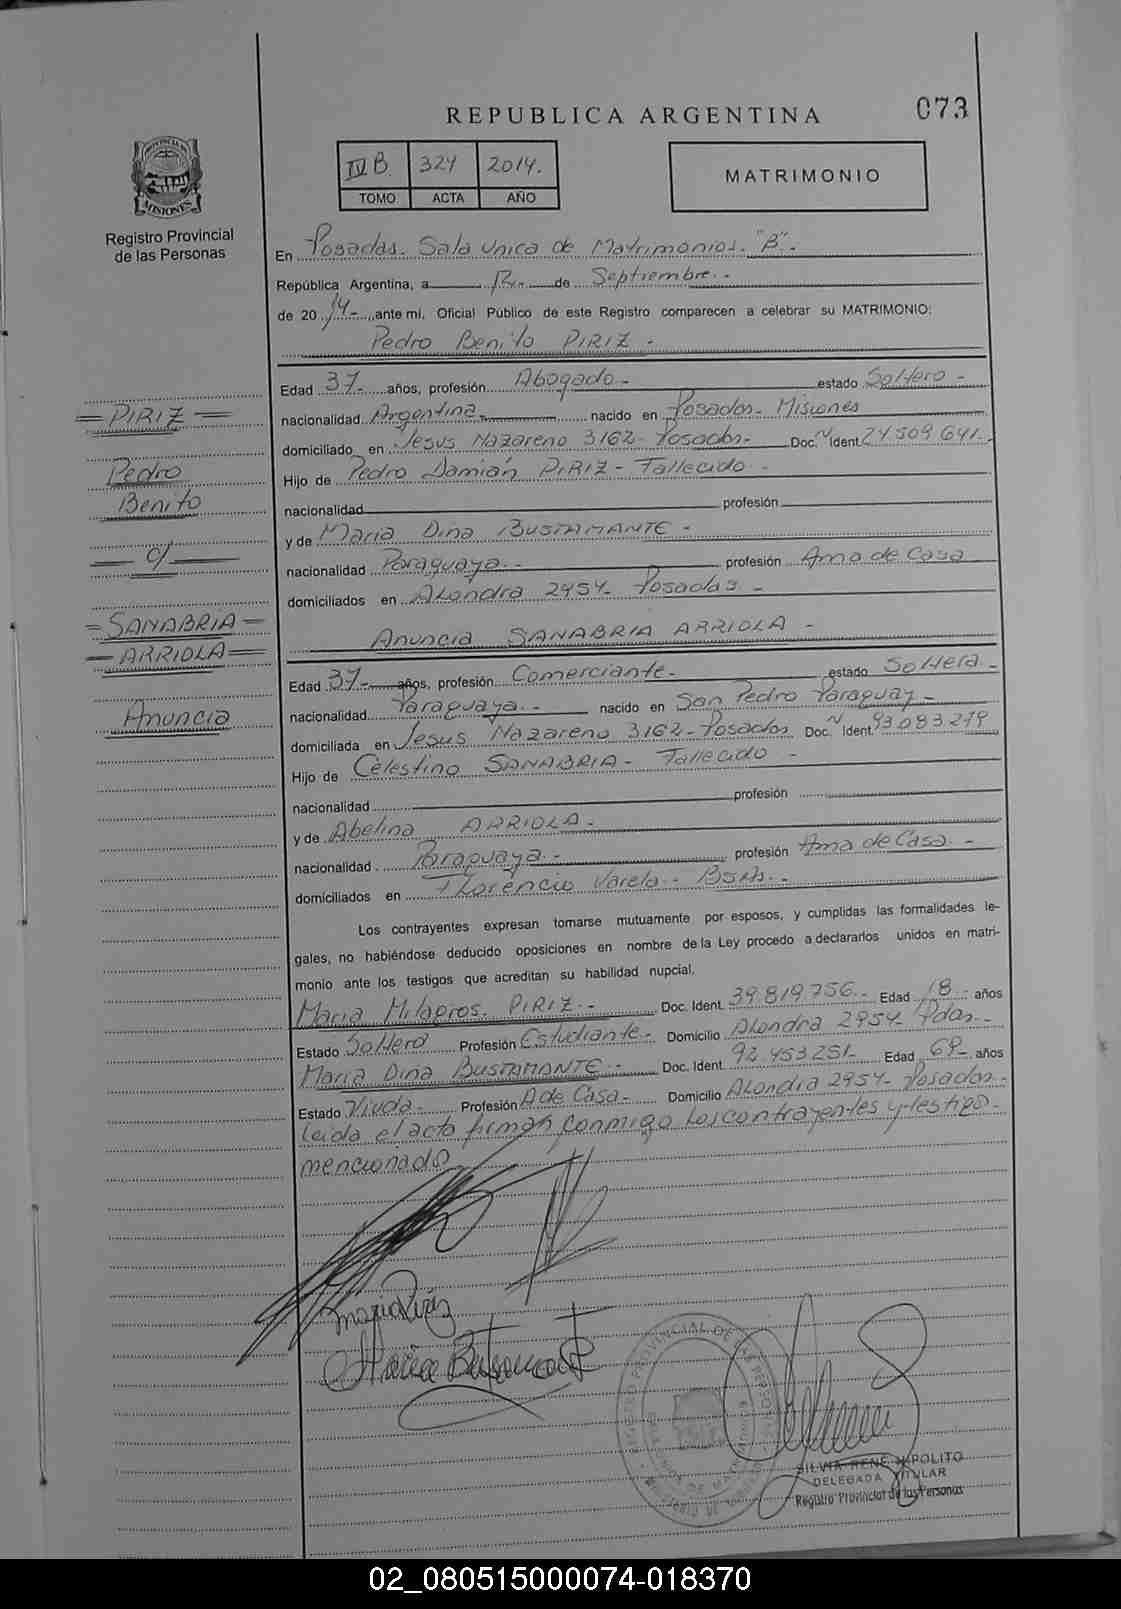 REPUBLICA ARGENTINA
073
IV B. 324 2014.
TOMO ACTA AÑO
MATRIMONIO
PROVINCIA DE
MISIONES
Registro Provincial
de las Personas
En Posadas. Sala unica de Matrimonios. "B".-
República Argentina, a 12 de Septiembre.-
de 20 14- ante mi, Oficial Público de este Registro comparecen a celebrar su MATRIMONIO:
Pedro Benito PIRIZ -
Edad 37- años, profesión Abogado - estado Soltero -
nacionalidad Argentina.- nacido en Posadas- Misiones
domiciliado en Jesus Nazareno 3162- Posadas- Doc. N Ident 24.509.641.
Hijo de Pedro Damián PIRIZ - Fallecido -
nacionalidad profesión
y de Maria Dina BUSTAMANTE -
nacionalidad Paraguaya.- profesión Ama de Casa
domiciliados en Alondra 2954- Posadas -
Anuncia SANABRIA ARRIOLA -
Edad 37- años, profesión Comerciante.- estado Soltera -
nacionalidad Paraguaya.- nacido en San Pedro Paraguay -
domiciliada en Jesus Nazareno 3162- Posadas Doc. N Ident. 93.083.279
Hijo de Celestino SANABRIA - Fallecido -
nacionalidad profesión
y de Abelina ARRIOLA.-
nacionalidad Paraguaya.- profesión Ama de Casa.-
domiciliados en Florencio Varela - BsAs.-
Los contrayentes expresan tomarse mutuamente por esposos, y cumplidas las formalidades le-
gales, no habiéndose deducido oposiciones en nombre de la Ley procedo a declararlos unidos en matri-
monio ante los testigos que acreditan su habilidad nupcial.
Maria Milagros. PIRIZ.- Doc. Ident. 39.819.756.- Edad 18- años
Estado Soltera Profesión Estudiante- Domicilio Alondra 2954- Pdas.-
Maria Dina BUSTAMANTE.- Doc. Ident. 92.453.251- Edad 69- años
Estado Viuda- Profesión A de Casa- Domicilio Alondra 2954- Posadas-
leida el acta firman conmigo los contrayentes y testigos
mencionados
= PIRIZ =
Pedro
Benito
- c/ -
= SANABRIA =
= ARRIOLA =
Anuncia
Maria Piriz
Maria Bustamante
REGISTRO PROVINCIAL DE LAS PERSONAS
SILVIA RENE HIPOLITO
DELEGADA TITULAR
Registro Provincial de las Personas
02_080515000074-018370